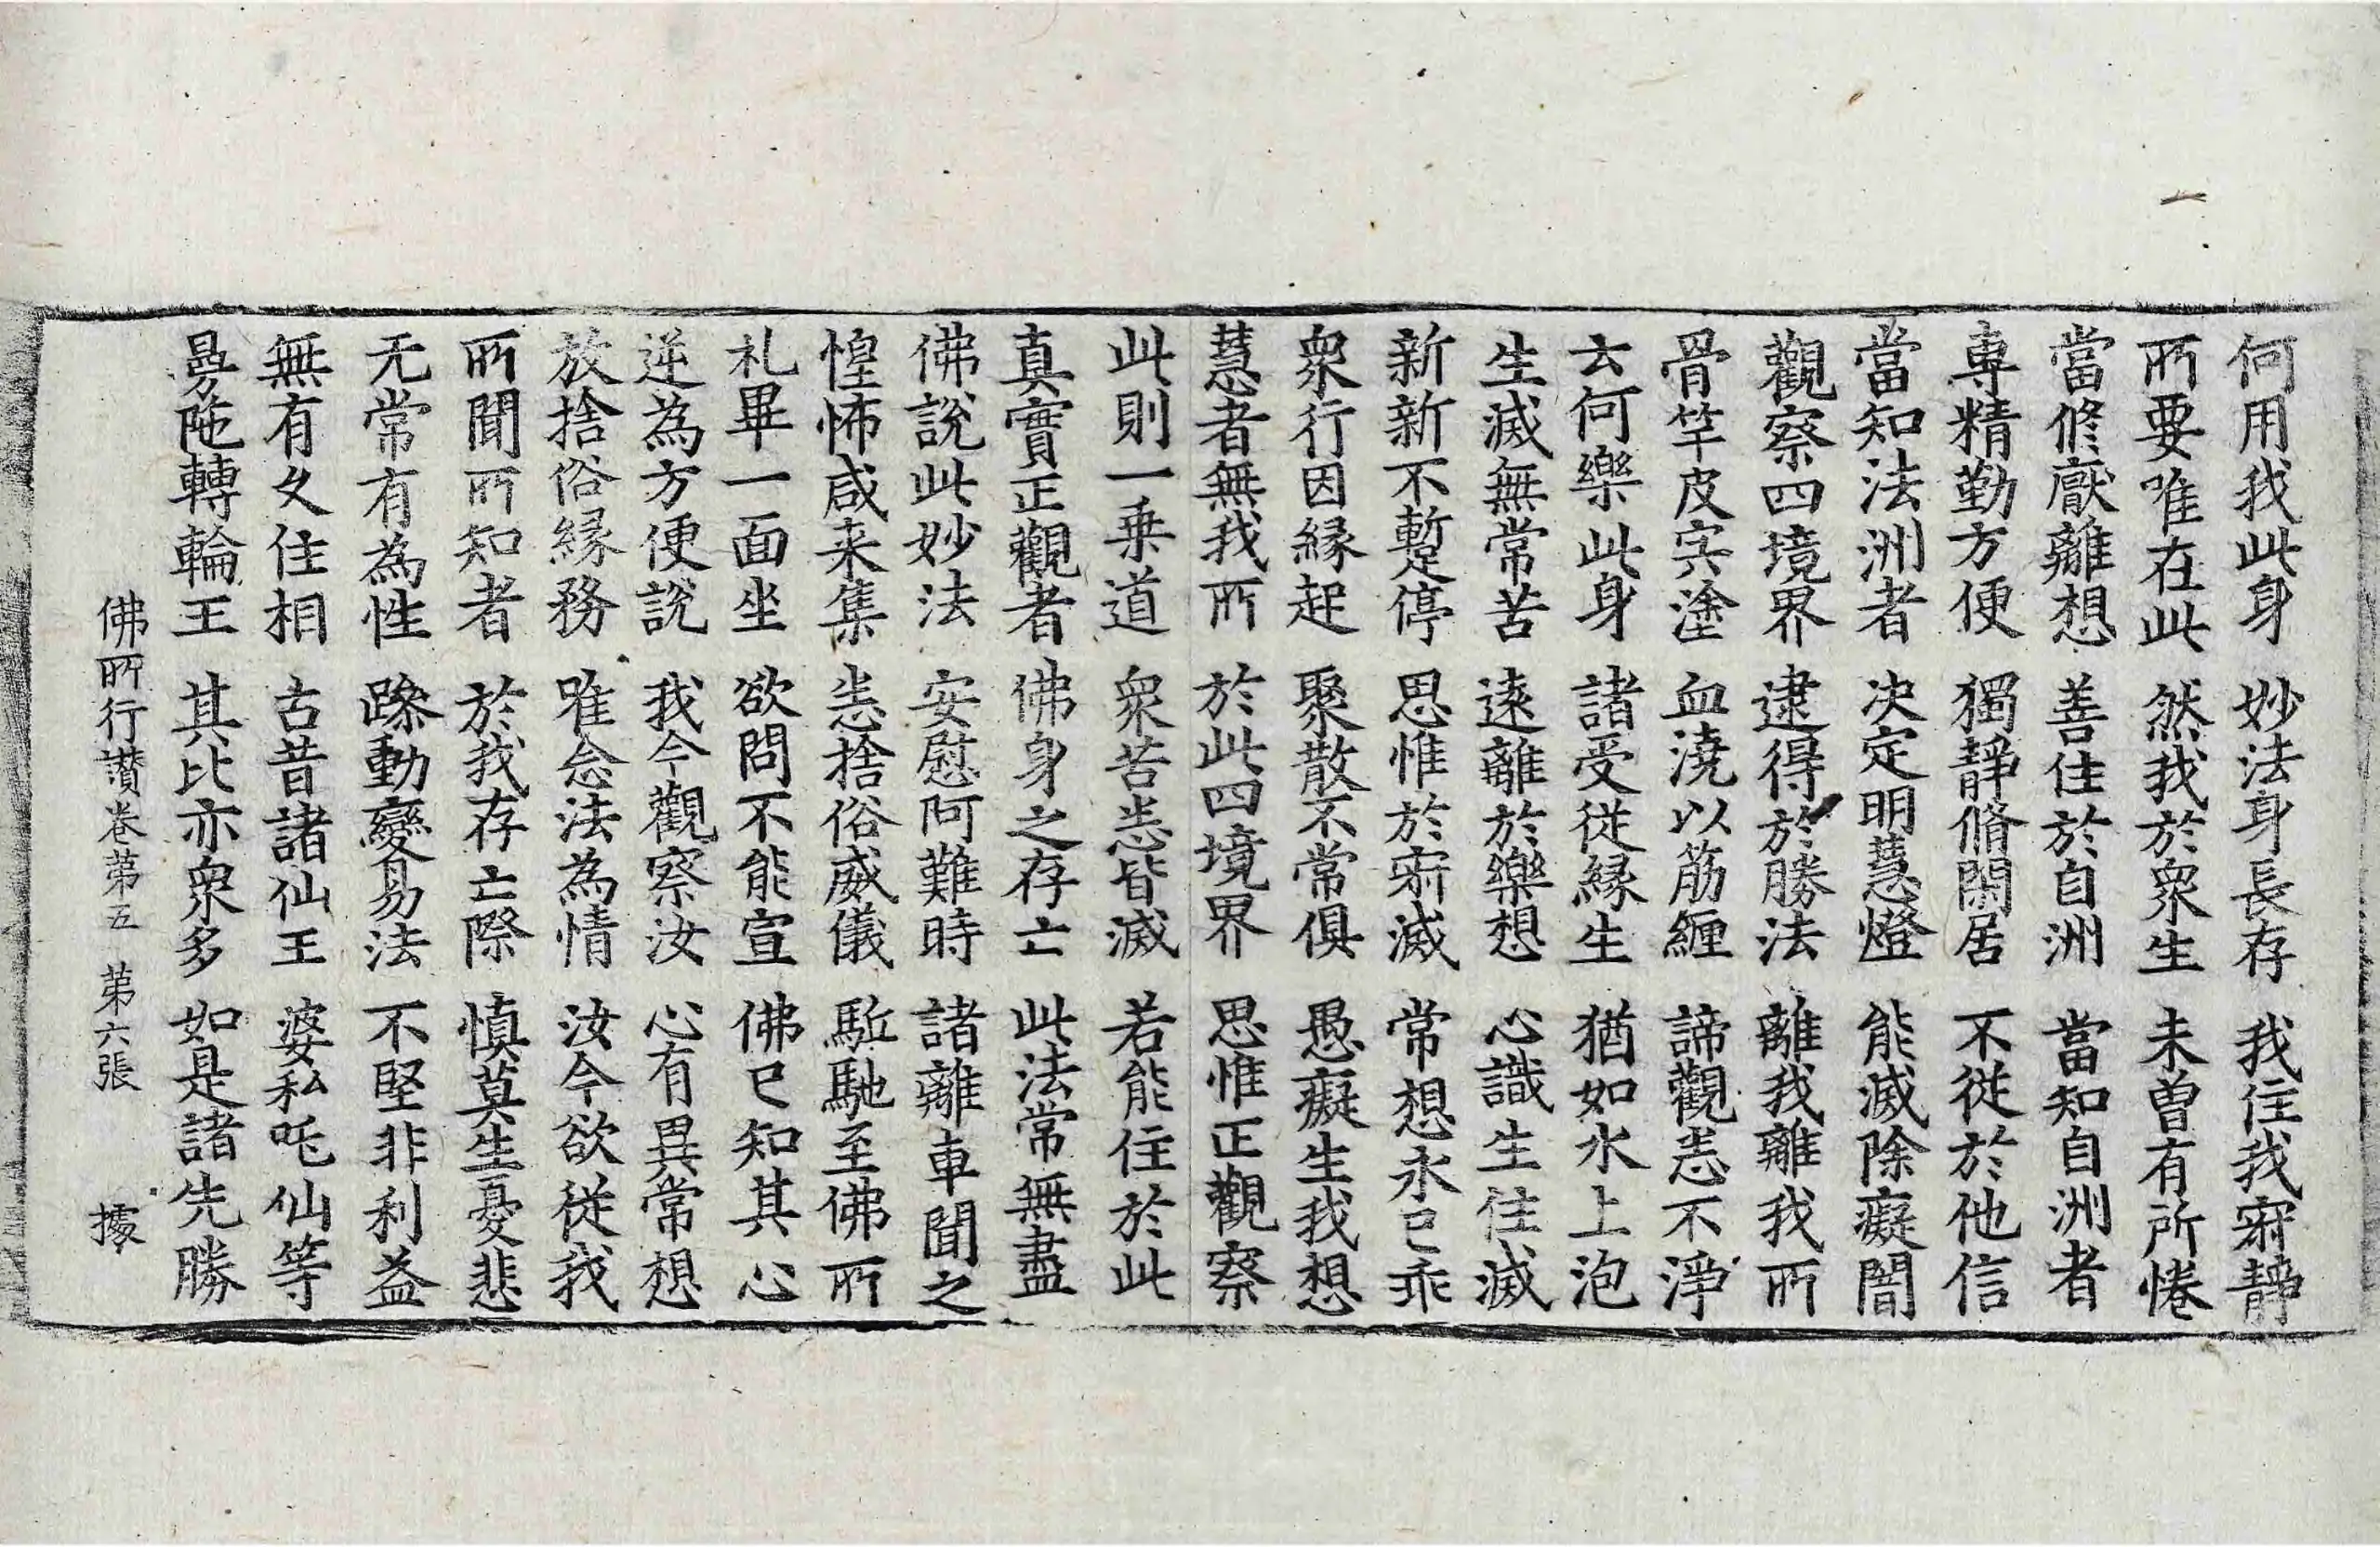 何用我此身 妙法身長存 我住我寂靜
所要唯在此 然我於衆生 未曾有所惓
當修猒離想 善住於自洲 當知自洲者
專精勤方便 獨靜脩閑居 不從於他信
當知法洲者 決定明慧燈 能滅除癡闇
觀察四境界 逮得於勝法 離我離我所
骨竿皮宍塗 血澆以筋纏 諦觀悉不淨
云何樂此身 諸受從緣生 猶如水上泡
生滅無常苦 遠離於樂想 心識生住滅
新新不暫停 思惟於寂滅 常想永已乖
衆行因緣起 聚散不常俱 愚癡生我想
慧者無我所 於此四境界 思惟正觀察
此則一乘道 衆苦悉皆滅 若能住於此
真實正觀者 佛身之存亡 此法常無盡
佛說此妙法 安慰阿難時 諸離車聞之
惶怖咸来集 悉捨俗威儀 駈馳至佛所
礼畢一面坐 欲問不能宣 佛已知其心
逆為方便說 我今觀察汝 心有異常想
放捨俗緣務 唯念法為情 汝今欲從我
所聞所知者 於我存亡際 慎莫生憂悲
无常有為性 躁動變易法 不堅非利益
無有久住相 古昔諸仙王 婆私吒仙等
曼陁轉輪王 其比亦衆多 如是諸先勝
佛所行讃卷第五 第六張 據